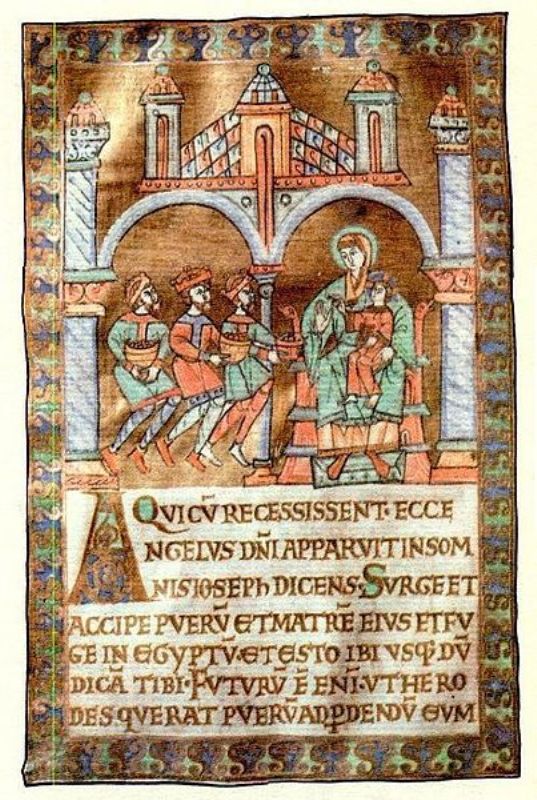 QUI CŪ RECESSISSENT· ECCE
ANGELUS DN̄I APPARUIT IN SOM
NIS IOSEPH DICENS· SURGE ET
ACCIPE PUERŪ ET MATRĒ EIUS ET FU
GE IN EGYPTŪ· ET ESTO IBI USQ· DŪ
DICĀ TIBI· FUTURŪ Ē ENĪ· UT HERO
DES QUERAT PUERŪ AD PDENDŪ EUM